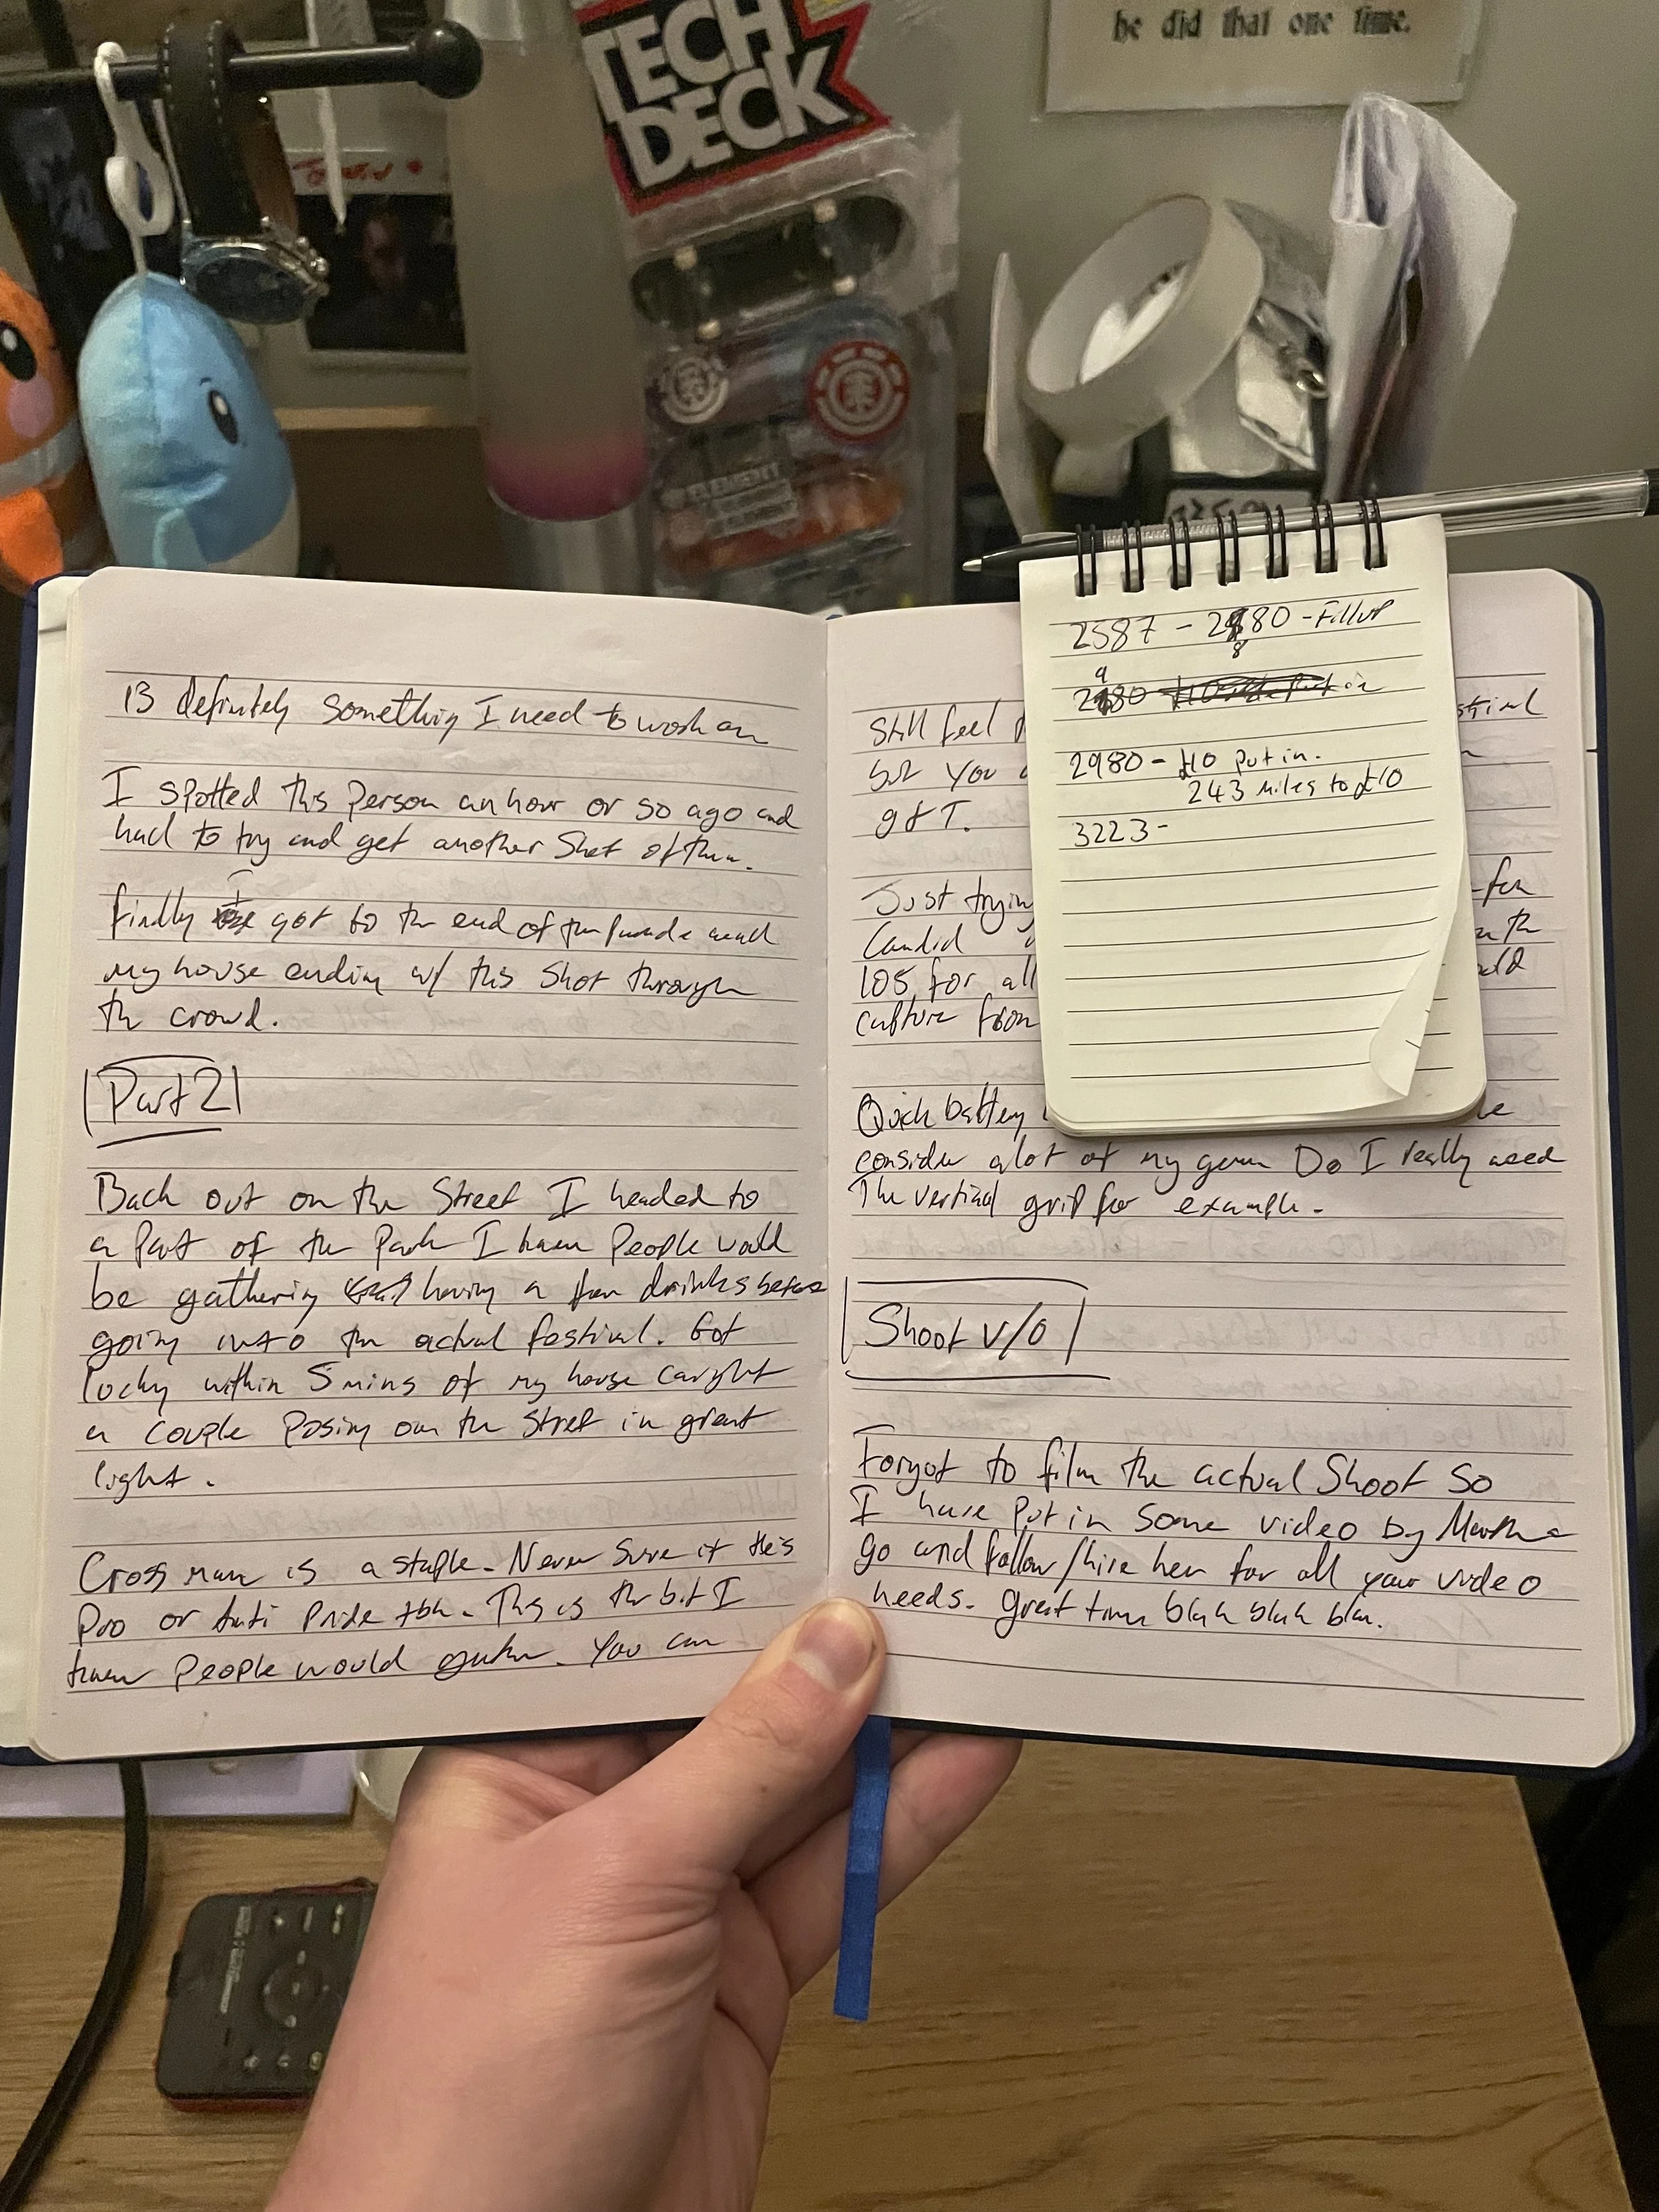 he did that one time.
TECH
DECK
ELEMENT
is definitely something I need to work on
I spotted this person an hour or so ago and
had to try and get another shot of them.
finally I got to the end of the parade near
my house ending w/ this shot through
the crowd.
Part 2
Back out on the Street I headed to
a part of the Park I knew People would
be gathering having a few drinks before
going into the actual festival. Got
lucky within 5 mins of my house caught
a couple posing on the Street in great
light.
Cross man is a staple. Never Sure if He's
Pro or Anti Pride tbh. This is the bit I
knew people would gather. You can
Still feel
but you
get
Just trying for
Candid
105 for all
culture from
Quick battery
consider alot of my gear Do I really need
The vertical grip for example.
Shoot v/o
Forgot to film the actual Shoot So
I have put in some video by Martha
go and follow/hire her for all your video
needs. great time blah blah bla.
2587 - 2880 - Fill up
2980
2980 - £10 put in.
243 miles to £10
3223 -